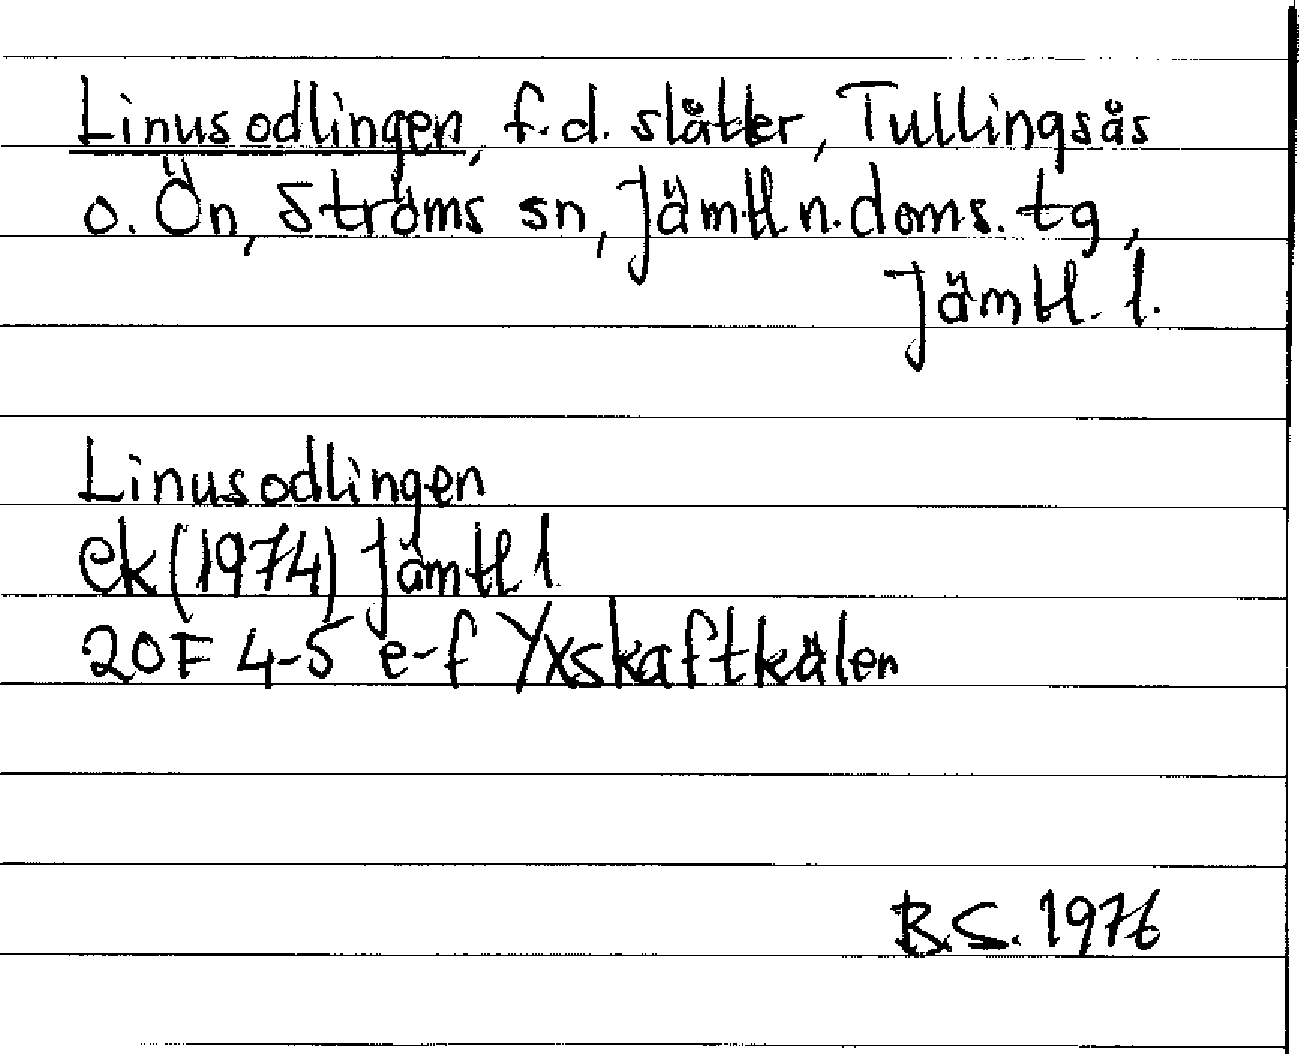 Linusodlingen, f.d. slåtter, Tullingsås
o. Ön, Ströms sn, Jämtl n. doms. tg,
Jämtl. l.
Linusodlingen
ek (1974) Jämtl l
20F 4-5 e-f Yxskaftkälen
B.S. 1976